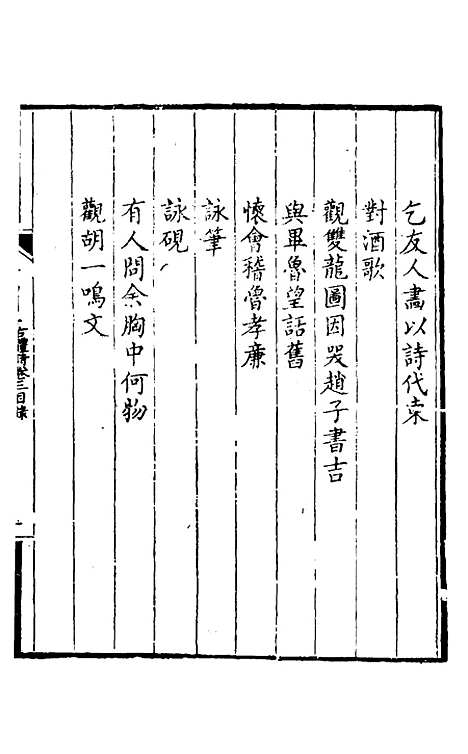 乞友人畫以詩代柬
對酒歌
觀雙龍圖因哭趙子書吉
與畢魯望話舊
懷會稽魯孝廉
詠筆
詠硯
有人問余胸中何物
觀胡一鳴文
古體詩卷三目錄